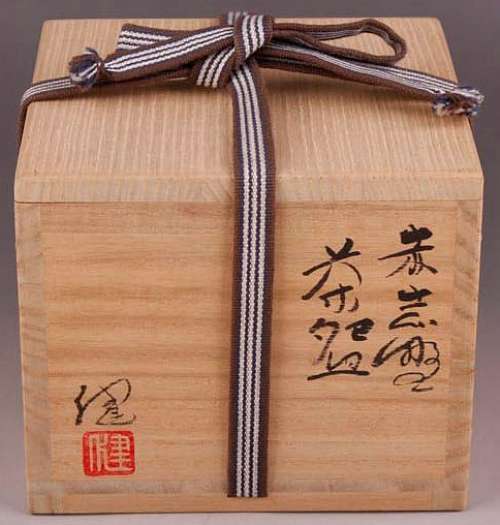 赤志野
茶盌
健
健